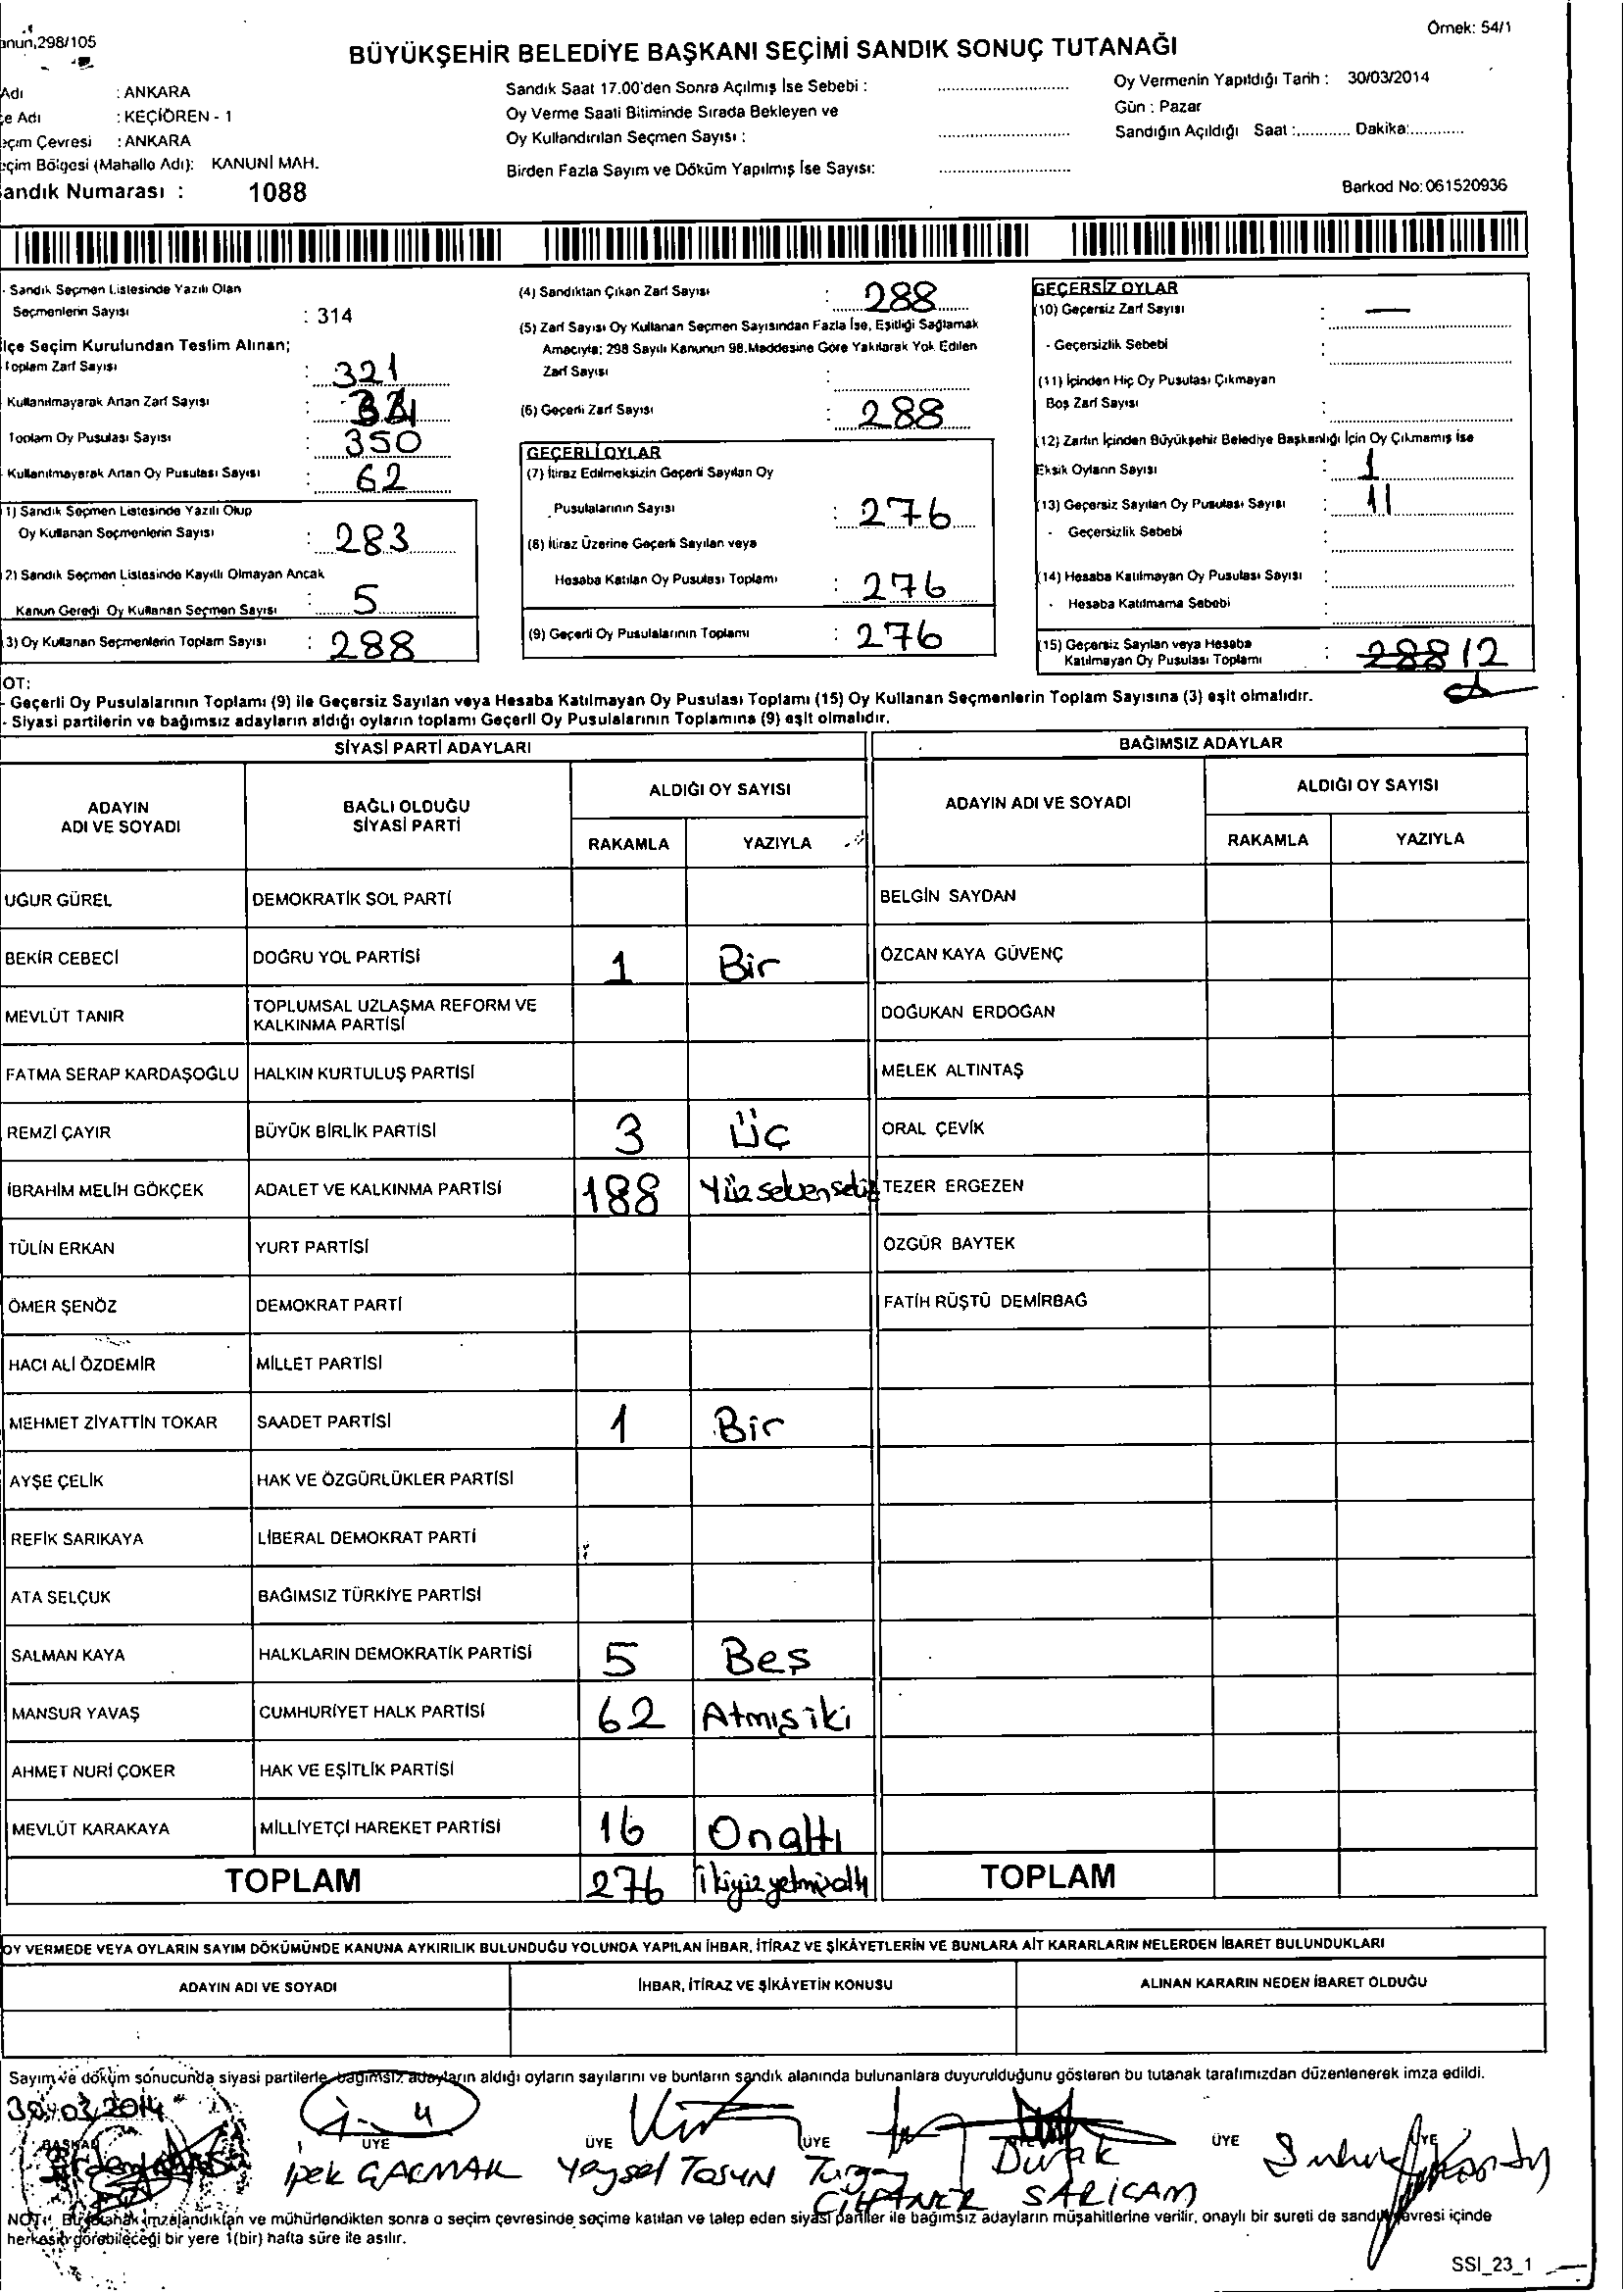 anun,298/105
Örnek: 54/1
BÜYÜKŞEHİR BELEDİYE BAŞKANI SEÇİMİ SANDIK SONUÇ TUTANAĞI
Adı : ANKARA
çe Adı : KEÇİÖREN - 1
eçim Çevresi : ANKARA
eçim Bölgesi (Mahalle Adı): KANUNİ MAH.
andık Numarası : 1088
Sandık Saat 17.00'den Sonra Açılmış İse Sebebi :
Oy Verme Saati Bitiminde Sırada Bekleyen ve
Oy Kullandırılan Seçmen Sayısı :
Birden Fazla Sayım ve Döküm Yapılmış İse Sayısı:
Oy Vermenin Yapıldığı Tarih : 30/03/2014
Gün : Pazar
Sandığın Açıldığı Saat :............ Dakika:............
Barkod No: 061520936
- Sandık Seçmen Listesinde Yazılı Olan
Seçmenlerin Sayısı : 314
lçe Seçim Kurulundan Teslim Alınan;
Toplam Zarf Sayısı : 321
Kullanılmayarak Artan Zarf Sayısı :
Toplam Oy Pusulası Sayısı : 350
Kullanılmayarak Artan Oy Pusulası Sayısı : 62
1) Sandık Seçmen Listesinde Yazılı Olup
Oy Kullanan Seçmenlerin Sayısı : 283
2) Sandık Seçmen Listesinde Kayıtlı Olmayan Ancak
Kanun Gereği Oy Kullanan Seçmen Sayısı : 5
3) Oy Kullanan Seçmenlerin Toplam Sayısı : 288
(4) Sandıktan Çıkan Zarf Sayısı : 288
(5) Zarf Sayısı Oy Kullanan Seçmen Sayısından Fazla İse, Eşitliği Sağlamak
Amacıyla; 298 Sayılı Kanunun 98.Maddesine Göre Yakılarak Yok Edilen
Zarf Sayısı :
(6) Geçerli Zarf Sayısı : 288
GEÇERLİ OYLAR
(7) İtiraz Edilmeksizin Geçerli Sayılan Oy
Pusulalarının Sayısı : 276
(8) İtiraz Üzerine Geçerli Sayılan veya
Hesaba Katılan Oy Pusulası Toplamı : 276
(9) Geçerli Oy Pusulalarının Toplamı : 276
GEÇERSİZ OYLAR
(10) Geçersiz Zarf Sayısı : —
- Geçersizlik Sebebi :
(11) İçinden Hiç Oy Pusulası Çıkmayan
Boş Zarf Sayısı :
(12) Zarfın İçinden Büyükşehir Belediye Başkanlığı İçin Oy Çıkmamış İse
Eksik Oyların Sayısı : 1
(13) Geçersiz Sayılan Oy Pusulası Sayısı : 11
- Geçersizlik Sebebi
(14) Hesaba Katılmayan Oy Pusulası Sayısı :
- Hesaba Katılmama Sebebi :
(15) Geçersiz Sayılan veya Hesaba
Katılmayan Oy Pusulası Toplamı : 288 12
OT:
- Geçerli Oy Pusulalarının Toplamı (9) ile Geçersiz Sayılan veya Hesaba Katılmayan Oy Pusulası Toplamı (15) Oy Kullanan Seçmenlerin Toplam Sayısına (3) eşit olmalıdır.
- Siyasi partilerin ve bağımsız adayların aldığı oyların toplamı Geçerli Oy Pusulalarının Toplamına (9) eşit olmalıdır.
SİYASİ PARTİ ADAYLARI
BAĞIMSIZ ADAYLAR
ADAYIN ADI VE SOYADI
BAĞLI OLDUĞU SİYASİ PARTİ
ALDIĞI OY SAYISI
RAKAMLA YAZIYLA
ADAYIN ADI VE SOYADI
ALDIĞI OY SAYISI
RAKAMLA YAZIYLA
UĞUR GÜREL DEMOKRATİK SOL PARTİ BELGİN SAYDAN
BEKİR CEBECİ DOĞRU YOL PARTİSİ 1 Bir ÖZCAN KAYA GÜVENÇ
MEVLÜT TANIR TOPLUMSAL UZLAŞMA REFORM VE KALKINMA PARTİSİ DOĞUKAN ERDOĞAN
FATMA SERAP KARDAŞOĞLU HALKIN KURTULUŞ PARTİSİ MELEK ALTINTAŞ
REMZİ ÇAYIR BÜYÜK BİRLİK PARTİSİ 3 Üç ORAL ÇEVİK
İBRAHİM MELİH GÖKÇEK ADALET VE KALKINMA PARTİSİ 188 Yüzseksensekiz TEZER ERGEZEN
TÜLİN ERKAN YURT PARTİSİ ÖZGÜR BAYTEK
ÖMER ŞENÖZ DEMOKRAT PARTİ FATİH RÜŞTÜ DEMİRBAĞ
HACI ALİ ÖZDEMİR MİLLET PARTİSİ
MEHMET ZİYATTİN TOKAR SAADET PARTİSİ 1 Bir
AYŞE ÇELİK HAK VE ÖZGÜRLÜKLER PARTİSİ
REFİK SARIKAYA LİBERAL DEMOKRAT PARTİ
ATA SELÇUK BAĞIMSIZ TÜRKİYE PARTİSİ
SALMAN KAYA HALKLARIN DEMOKRATİK PARTİSİ 5 Beş
MANSUR YAVAŞ CUMHURİYET HALK PARTİSİ 62 Atmışiki
AHMET NURİ ÇOKER HAK VE EŞİTLİK PARTİSİ
MEVLÜT KARAKAYA MİLLİYETÇİ HAREKET PARTİSİ 16 Onaltı
TOPLAM 276 İkiyüzyetmişaltı TOPLAM
OY VERMEDE VEYA OYLARIN SAYIM DÖKÜMÜNDE KANUNA AYKIRILIK BULUNDUĞU YOLUNDA YAPILAN İHBAR, İTİRAZ VE ŞİKÂYETLERİN VE BUNLARA AİT KARARLARIN NELERDEN İBARET BULUNDUKLARI
ADAYIN ADI VE SOYADI İHBAR, İTİRAZ VE ŞİKÂYETİN KONUSU ALINAN KARARIN NEDEN İBARET OLDUĞU
Sayım ve döküm sonucunda siyasi partilerle bağımsız adayların aldığı oyların sayılarını ve bunların sandık alanında bulunanlara duyurulduğunu gösteren bu tutanak tarafımızdan düzenlenerek imza edildi.
30/03/2014
BAŞKAN ÜYE ÜYE ÜYE ÜYE ÜYE
İpek Veysel TOSUN Turgay Durak SARIÇAM
NOT: Bu tutanak imzalandıktan ve mühürlendikten sonra o seçim çevresinde seçime katılan ve talep eden siyasi partiler ile bağımsız adayların müşahitlerine verilir, onaylı bir sureti de sandık çevresi içinde
herkesin görebileceği bir yere 1(bir) hafta süre ile asılır.
SSI_23_1